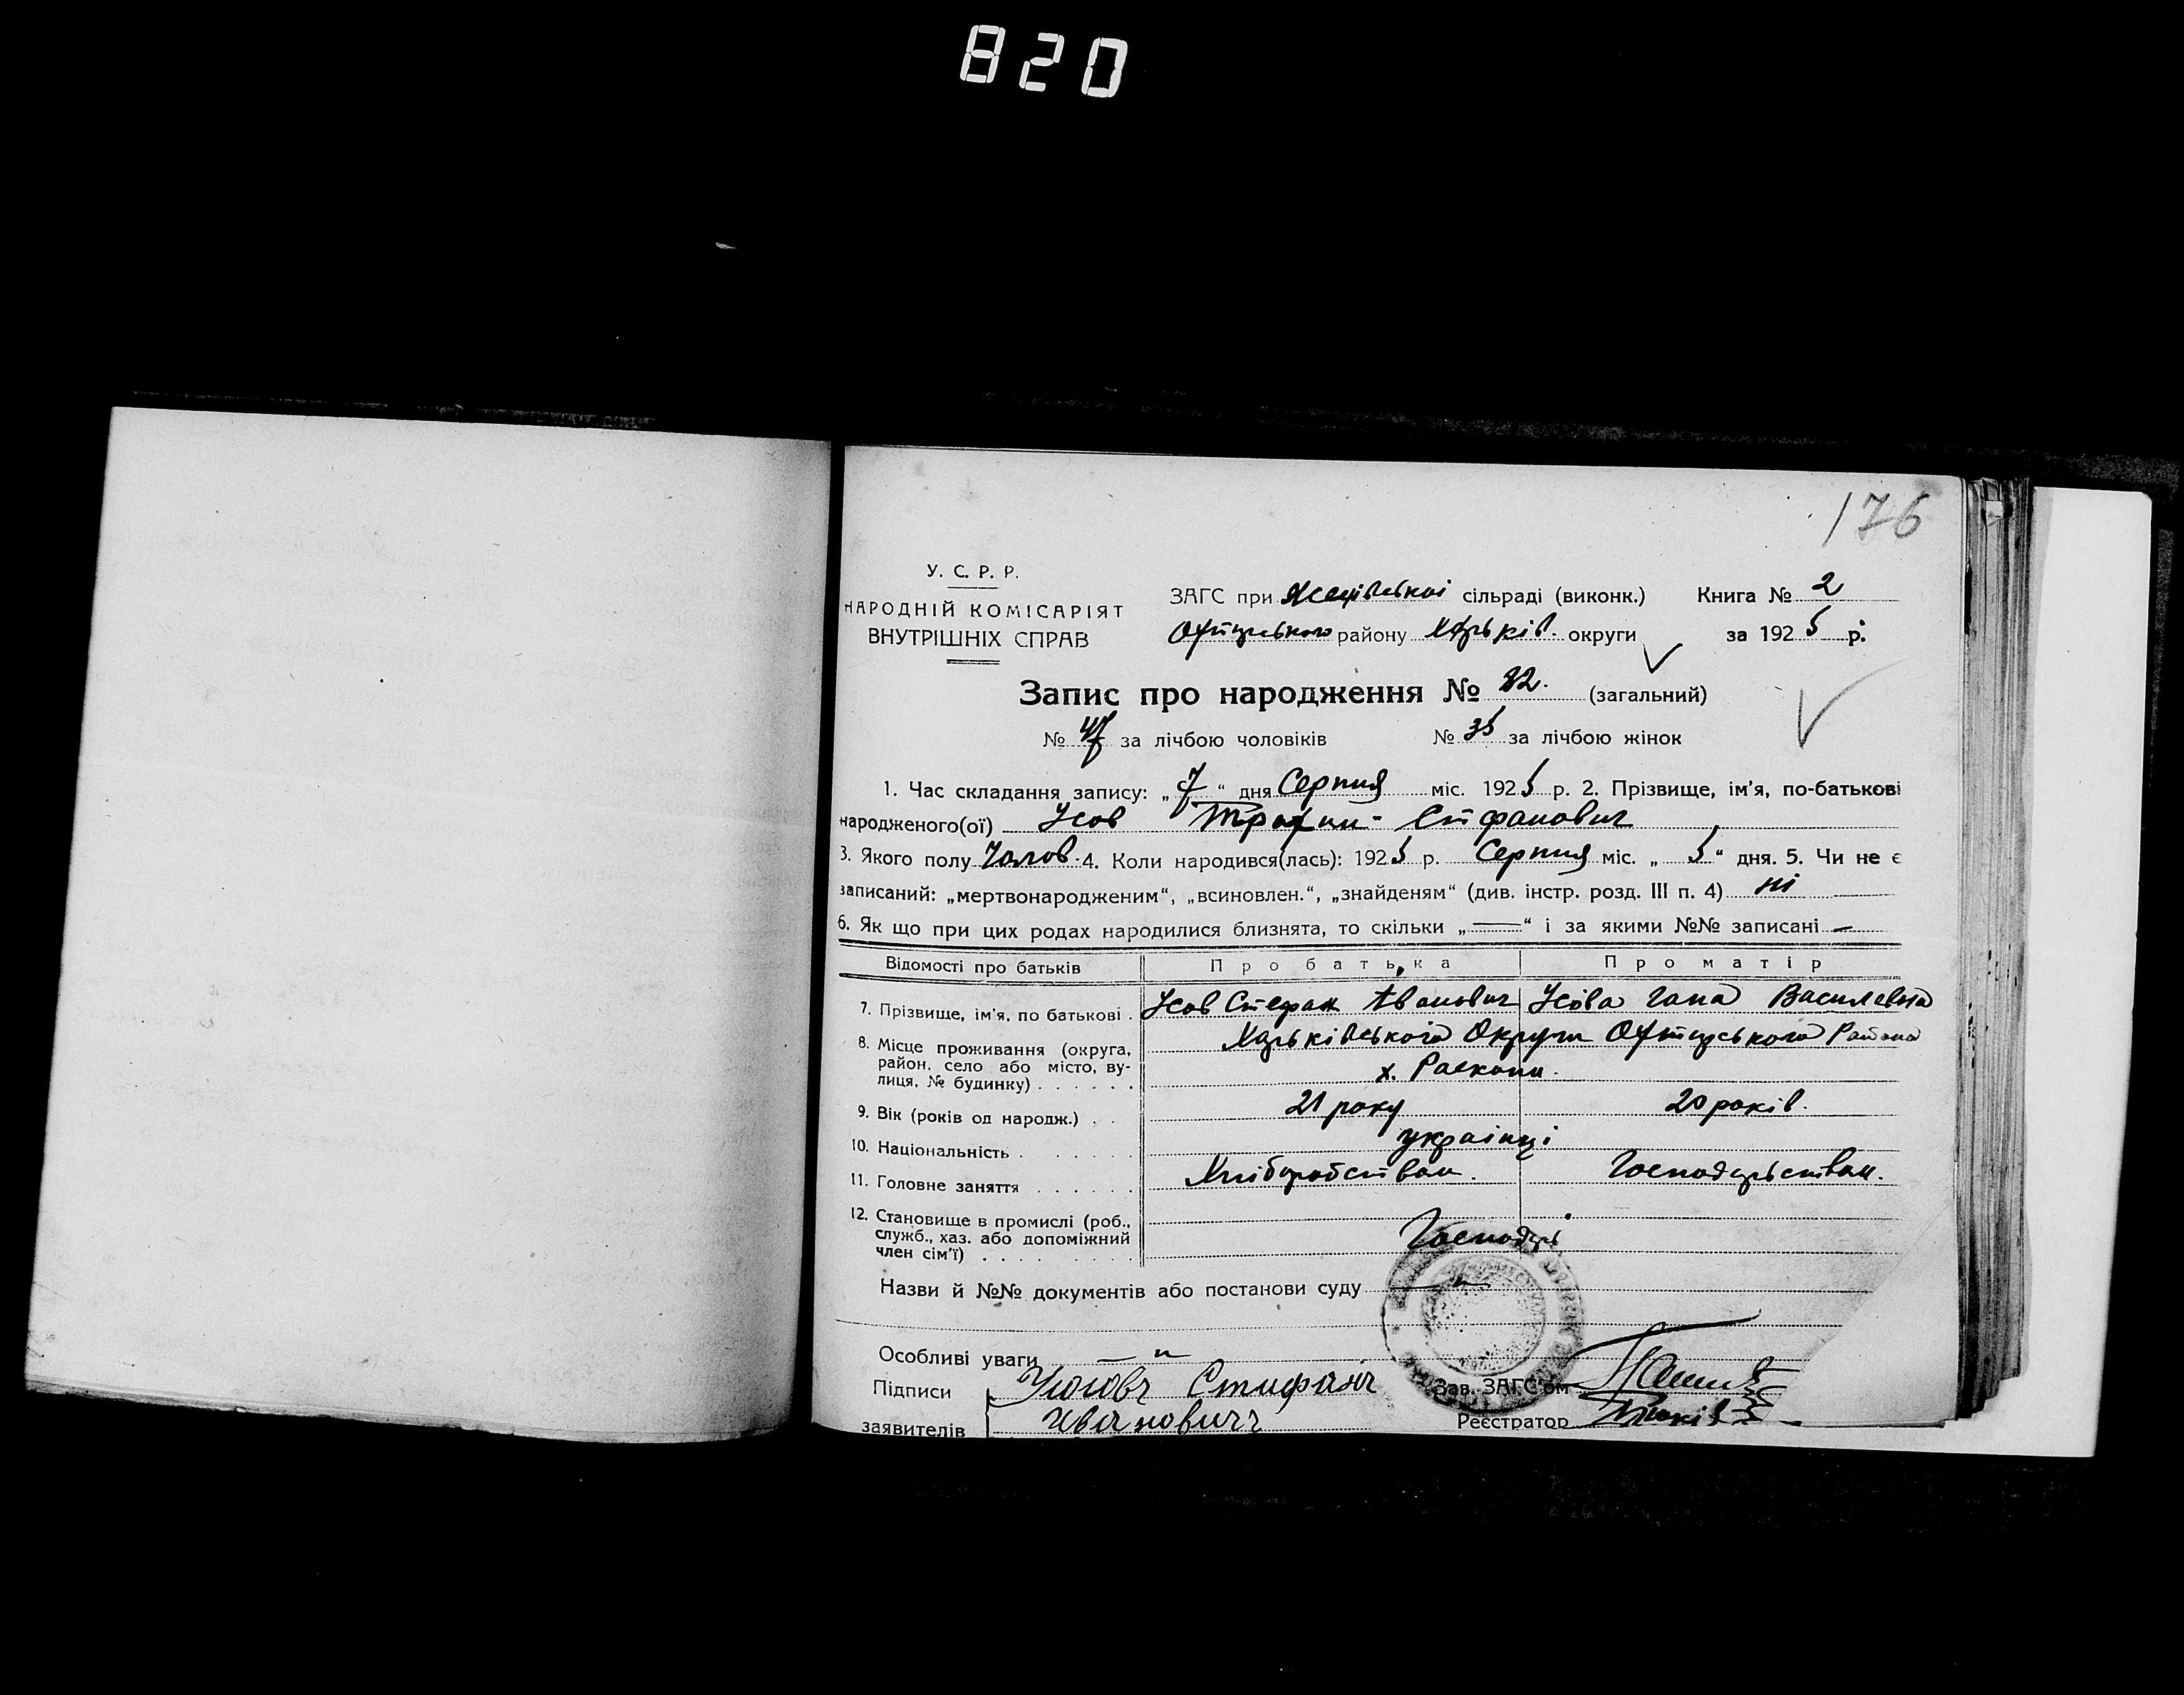 820
176
У. С. Р. Р.
НАРОДНІЙ КОМІСАРІЯТ
ВНУТРІШНІХ СПРАВ
ЗАГС при сільраді (виконк.) Книга № 2
району Харьків. округи за 1925 р.
Запис про народження № 82. (загальний)
№ 47 за лічбою чоловіків № 35 за лічбою жінок
1. Час складання запису: „7“ дня Серпня міс. 1925 р. 2. Прізвище, ім'я, по-батькові
народженого(ої) Усов Трохим Стфанович
3. Якого полу Чолов. 4. Коли народився(лась): 1925 р. Серпня міс. „5“ дня. 5. Чи не є
записаний: „мертвонародженим“, „всиновлен.“, „знайденям“ (див. інстр. розд. III п. 4) ні
6. Як що при цих родах народилися близнята, то скільки „—“ і за якими №№ записані —
Відомості про батьків Про батька Про матір
7. Прізвище, ім'я, по батькові . Усов Стефан Іванович Усова Гапа Василевна
8. Місце проживання (округа, район, село або місто, вулиця, № будинку) . . . . . . Харьківського Округи Охтирського Района
х. Раскопи.
9. Вік (років од народж.) . . 21 року 20 років.
10. Національність . . . . . . українці
11. Головне заняття . . . . . . Хліборобством. Господарьством.
12. Становище в промислі (роб., служб., хаз. або допоміжний член сім'ї) . . . . . . . . Господарь
Назви й №№ документів або постанови суду — „ —
Особливі уваги — „ —
Підписи Стифанъ
заявителів Ивановичъ
Зав. ЗАГС'ом
Реєстратор